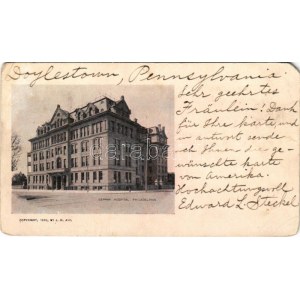 Doylestown, Pennsylvania.
Sehr geehrtes
Fräulein! Dank
für Ihre Karte und
in antwort sende
ich Ihnen die ge-
wünschte Karte
von Amerika.
Hochachtungsvoll
Edward L. Steckel
GERMAN HOSPITAL, PHILADELPHIA
COPYRIGHT, 1900, BY
darabanth